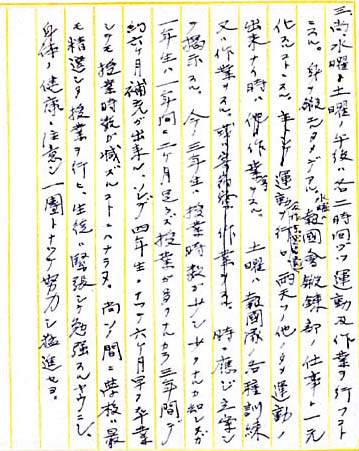 三尚水曜ト土曜ノ午後ハ各二時間ヅツ運動及作業ヲ行フコト
ニスル。身ヲ鍛ヘルタメデアル。水曜ハ報國會鍛錬部ノ仕事ト一元
化スルコトニスル。主トシテ運動ヲ行ヒ、雨天ソノ他ノタメ運動ノ
出来ナイ時ハ他ノ作業ヲスル。土曜ハ報國隊ノ各種訓練
又ハ作業ヲスル。作業ヲスル。時ニ應ジ立案シ
テ掲示スル。今ノ三年生ハ授業時数ガ少シ少クナルカモ知レヌガ
一年生ハ一年間ニ二ケ月足ラズ授業ガ多クナルカラ三年間デ
約六ケ月補充ガ出来ル。ソレデ四年生ニナツテ六ケ月早ク卒業
シテモ授業時数ガ減ズルコトニハナラヌ。尚ソノ間ニ學校ハ最
モ精選シタ授業ヲ行ヒ、生徒ハ緊張シテ勉強スルヤウニシ、
身体ノ健康ニ注意シ一團トナツテ努力シ猛進セヨ。